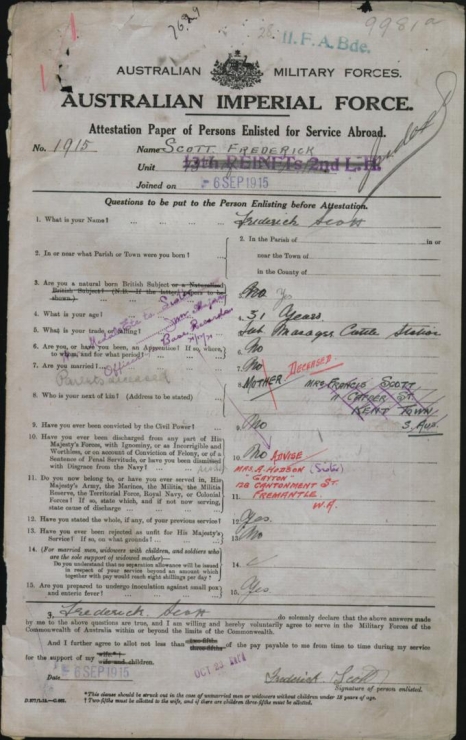 76.29
11. F. A. Bde.
9981a
AUSTRALIAN MILITARY FORCES.
AUSTRALIAN IMPERIAL FORCE.
Attestation Paper of Persons Enlisted for Service Abroad.
No. 1915 Name SCOTT FREDERICK
Unit 13th REINFTs 2nd L.H.
Joined on 6 SEP 1915
Questions to be put to the Person Enlisting before Attestation.
1. What is your Name? ... Frederick Scott
2. In or near what Parish or Town were you born? ... 2. In the Parish of in or
near the Town of
in the County of
3. Are you a natural born British Subject or a Naturalised
British Subject? (N.B. If the latter, papers to be
shown.) 3. No Yes
4. What is your age? 4. 31 Years
5. What is your trade or calling? 5. Sub Manager Cattle Station
6. Are you, or have you been, an Apprentice? If so, where,
to whom, and for what period? 6. No
7. Are you married? 7. No
Parents deceased
8. Who is your next of kin? (Address to be stated) 8. MOTHER DECEASED MRS FRANCIS SCOTT,
KENT TOWN
S. Aus.
9. Have you ever been convicted by the Civil Power? 9. No
10. Have you ever been discharged from any part of His
Majesty's Forces, with Ignominy, or as Incorrigible and
Worthless, or on account of Conviction of Felony, or of a
Sentence of Penal Servitude, or have you been dismissed
with Disgrace from the Navy? 10. No
ADVISE
MRS. A. HODSON (Sister)
"GAYTON"
128 CANTONMENT ST.
FREMANTLE.
W.A.
11. Do you now belong to, or have you ever served in, His
Majesty's Army, the Marines, the Militia, the Militia
Reserve, the Territorial Force, Royal Navy, or Colonial
Forces? If so, state which, and if not now serving,
state cause of discharge 11.
12. Have you stated the whole, if any, of your previous service? 12. Yes
13. Have you ever been rejected as unfit for His Majesty's
Service? If so, on what grounds? 13. No
14. (For married men, widowers with children, and soldiers who
are the sole support of widowed mother)—
Do you understand that no separation allowance will be issued
in respect of your service beyond an amount which
together with pay would reach eight shillings per day? 14.
15. Are you prepared to undergo inoculation against small pox
and enteric fever? 15. Yes
I, Frederick Scott do solemnly declare that the above answers made
by me to the above questions are true, and I am willing and hereby voluntarily agree to serve in the Military Forces of the
Commonwealth of Australia within or beyond the limits of the Commonwealth.
And I further agree to allot not less than two-fifths three-fifths of the pay payable to me from time to time during my service
for the support of my wife* wife and children.
Date 6 SEP 1915 Frederick Scott
Signature of person enlisted.
*This clause should be struck out in the case of unmarried men or widowers without children under 18 years of age.
†Two fifths must be allotted to the wife, and if there are children three-fifths must be allotted.